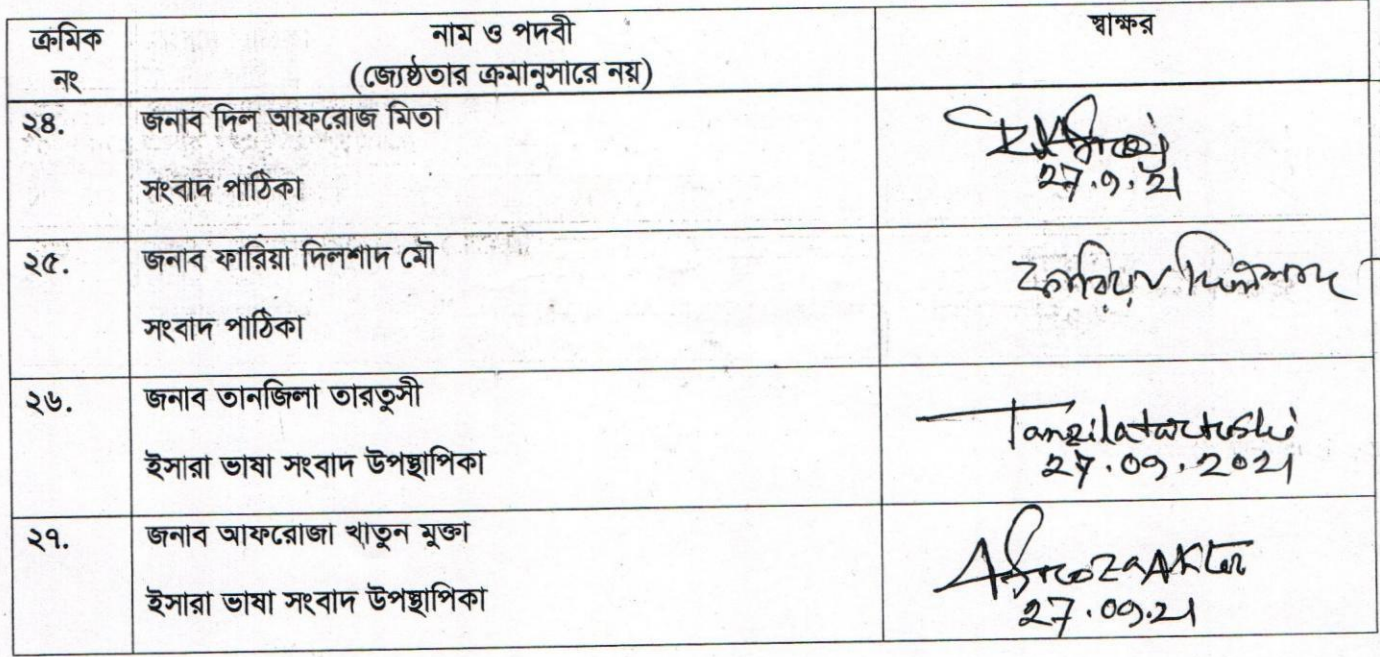 ক্রমিক নং
নাম ও পদবী
(জ্যেষ্ঠতার ক্রমানুসারে নয়)
স্বাক্ষর
২৪.
জনাব দিল আফরোজ মিতা
সংবাদ পাঠিকা
27.9.21
২৫.
জনাব ফারিয়া দিলশাদ মৌ
সংবাদ পাঠিকা
ফারিয়া দিলশাদ
২৬.
জনাব তানজিলা তারতুসী
ইসারা ভাষা সংবাদ উপস্থাপিকা
Tanzilatartushi
27.09.2021
২৭.
জনাব আফরোজা খাতুন মুক্তা
ইসারা ভাষা সংবাদ উপস্থাপিকা
Afroza Akter
27.09.21